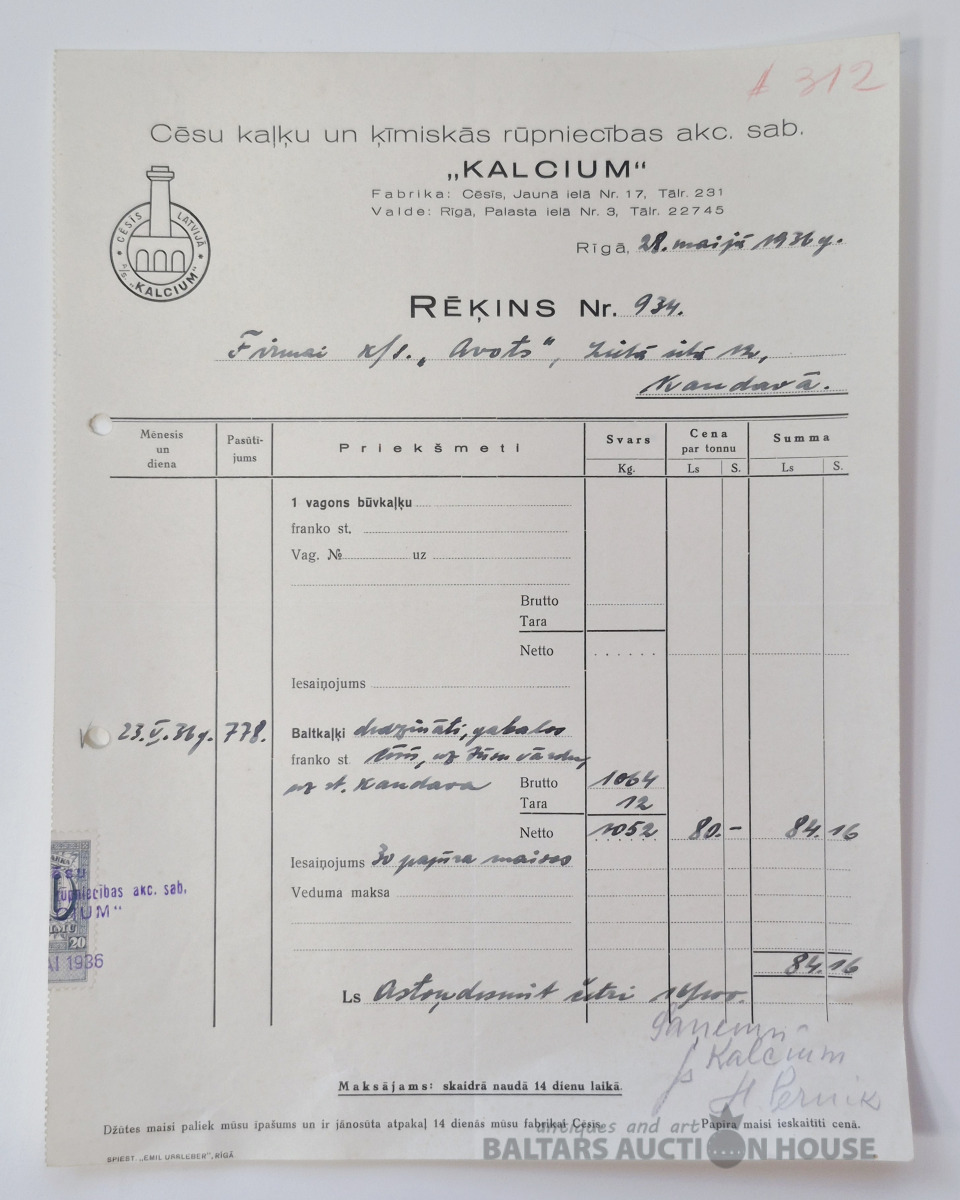 A 312
Cēsu kaļķu un ķīmiskās rūpniecības akc. sab.
„KALCIUM“
Fabrika: Cēsīs, Jaunā ielā Nr. 17, Tālr. 231
Valde: Rīgā, Palasta ielā Nr. 3, Tālr. 22745
CĒSIS LATVIJĀ
A/S „KALCIUM“
Rīgā, 28. maijā 1936 g.
RĒĶINS Nr. 934.
Firmai k/s. „Avots“,
Kandavā.
Mēnesis un diena
Pasūti-jums
Priekšmeti
Svars
Cena par tonnu
Summa
Kg. Ls S. Ls S.
1 vagons būvkaļķu
franko st.
Vag. № uz
Brutto
Tara
Netto
Iesaiņojums
23.V.36g. 778. Baltkaļķi dedzināti, gabalos
franko st uz Jūsu vārdu,
uz st. Kandava Brutto 1064
Tara 12
Netto 1052 80.- 84.16
Iesaiņojums 30 papīra maisos
Veduma maksa
84.16
Ls Astoņdesmit četri 16/100.
rūpniecības akc. sab.
UM“
20
AI 1936
Kalcium
Maksājams: skaidrā naudā 14 dienu laikā.
Džūtes maisi paliek mūsu īpašums un ir jānosūta atpakaļ 14 dienās mūsu fabrikai Cēsīs. Papīra maisi ieskaitīti cenā.
SPIEST. „EMIL UPPLEBER“, RĪGĀ
antiques and art
BALTARS AUCTION HOUSE